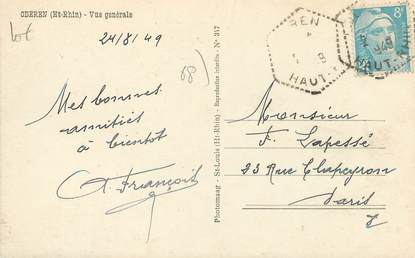 OBEREN (Ht-Rhin) - Vue générale
24/8/49
68)
Mes bonnes
amitiés
à bientôt
A. François
Photomaag - St-Louis (Ht-Rhin) - Reproduction interdite - N° 317
REN
HAUT
8F
Monsieur
F. Lapessé
33 Rue Clapeyron
Paris